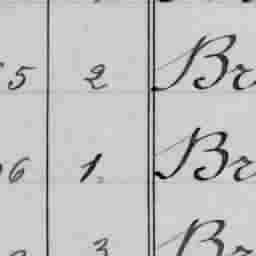 5 2 Br
6 1 Br
3 Br